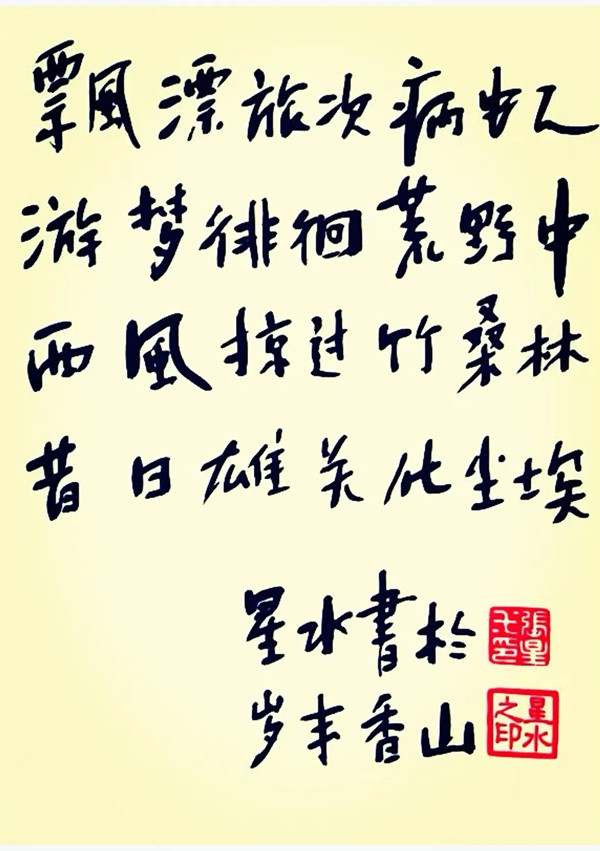 飄漂旅次病人
游梦徘徊荒野中
西風掠过竹桑林
昔日雄关化尘埃
星水書於
張星印
岁丰香山
星水之印